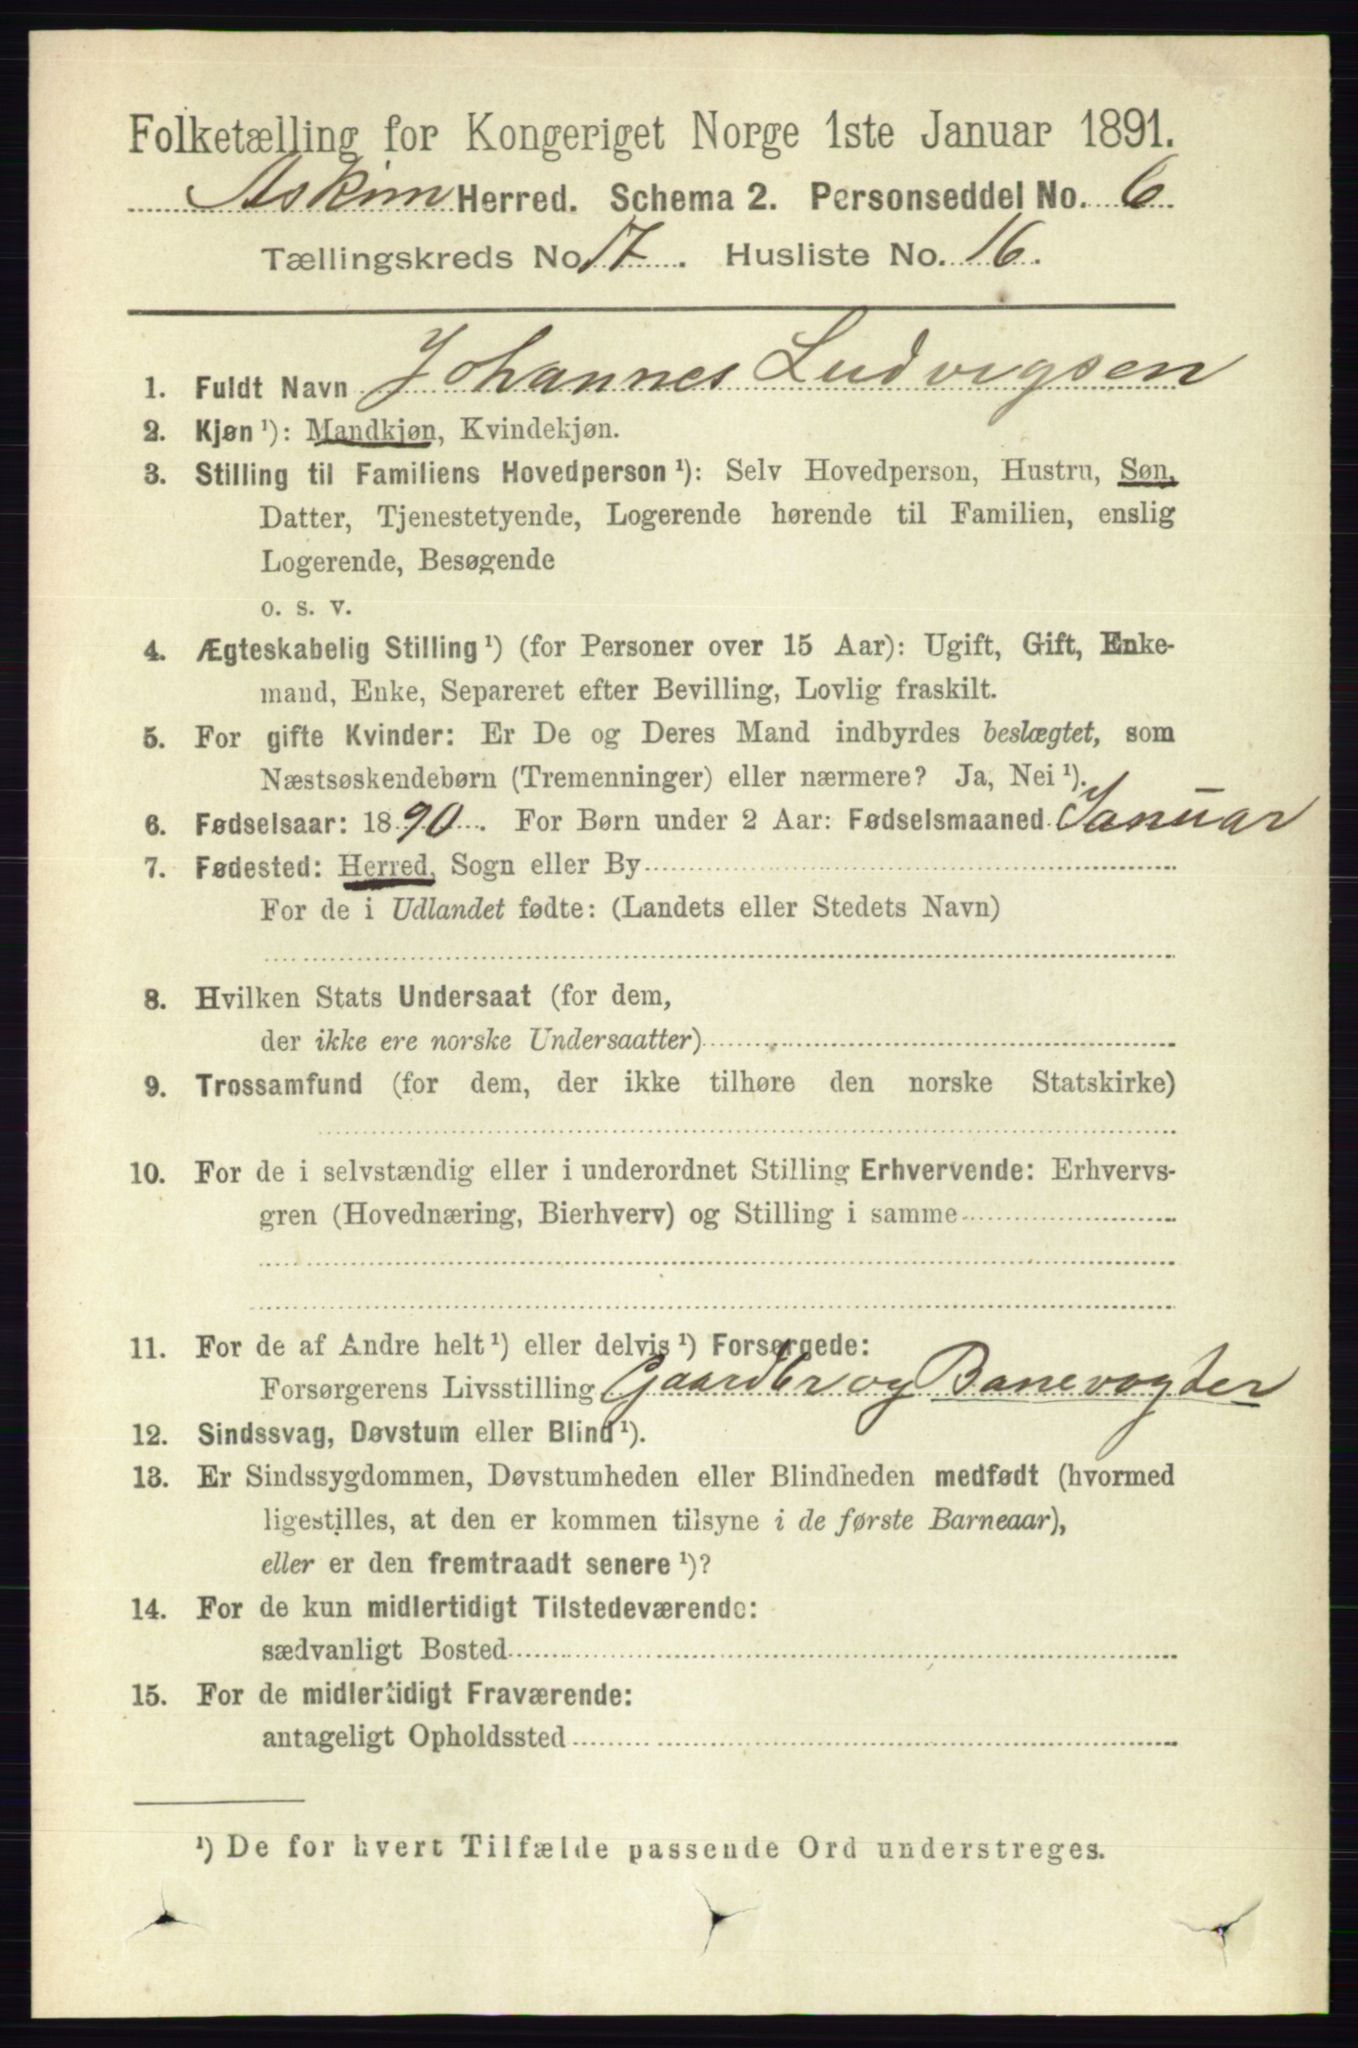 Folketælling for Kongeriget Norge 1ste Januar 1891.
Askim Herred. Schema 2. Personseddel No. 6
Tællingskreds No 17. Husliste No. 16.
1. Fuldt Navn Johannes Ludvigsen
2. Kjøn ¹): Mandkjøn, Kvindekjøn.
3. Stilling til Familiens Hovedperson ¹): Selv Hovedperson, Hustru, Søn,
Datter, Tjenestetyende, Logerende hørende til Familien, enslig
Logerende, Besøgende
o. s. v.
4. Ægteskabelig Stilling ¹) (for Personer over 15 Aar): Ugift, Gift, Enke-
mand, Enke, Separeret efter Bevilling, Lovlig fraskilt.
5. For gifte Kvinder: Er De og Deres Mand indbyrdes beslægtet, som
Næstsøskendebørn (Tremenninger) eller nærmere? Ja, Nei ¹).
6. Fødselsaar: 1890. For Børn under 2 Aar: Fødselsmaaned Januar
7. Fødested: Herred, Sogn eller By
For de i Udlandet fødte: (Landets eller Stedets Navn)
8. Hvilken Stats Undersaat (for dem,
der ikke ere norske Undersaatter)
9. Trossamfund (for dem, der ikke tilhøre den norske Statskirke)
10. For de i selvstændig eller i underordnet Stilling Erhvervende: Erhvervs-
gren (Hovednæring, Bierhverv) og Stilling i samme
11. For de af Andre helt ¹) eller delvis ¹) Forsørgede:
Forsørgerens Livsstilling Gaardbr og Banevogter
12. Sindssvag, Døvstum eller Blind ¹).
13. Er Sindssygdommen, Døvstumheden eller Blindheden medfødt (hvormed
ligestilles, at den er kommen tilsyne i de første Barneaar),
eller er den fremtraadt senere ¹)?
14. For de kun midlertidigt Tilstedeværende:
sædvanligt Bosted
15. For de midlertidigt Fraværende:
antageligt Opholdssted
¹) De for hvert Tilfælde passende Ord understreges.